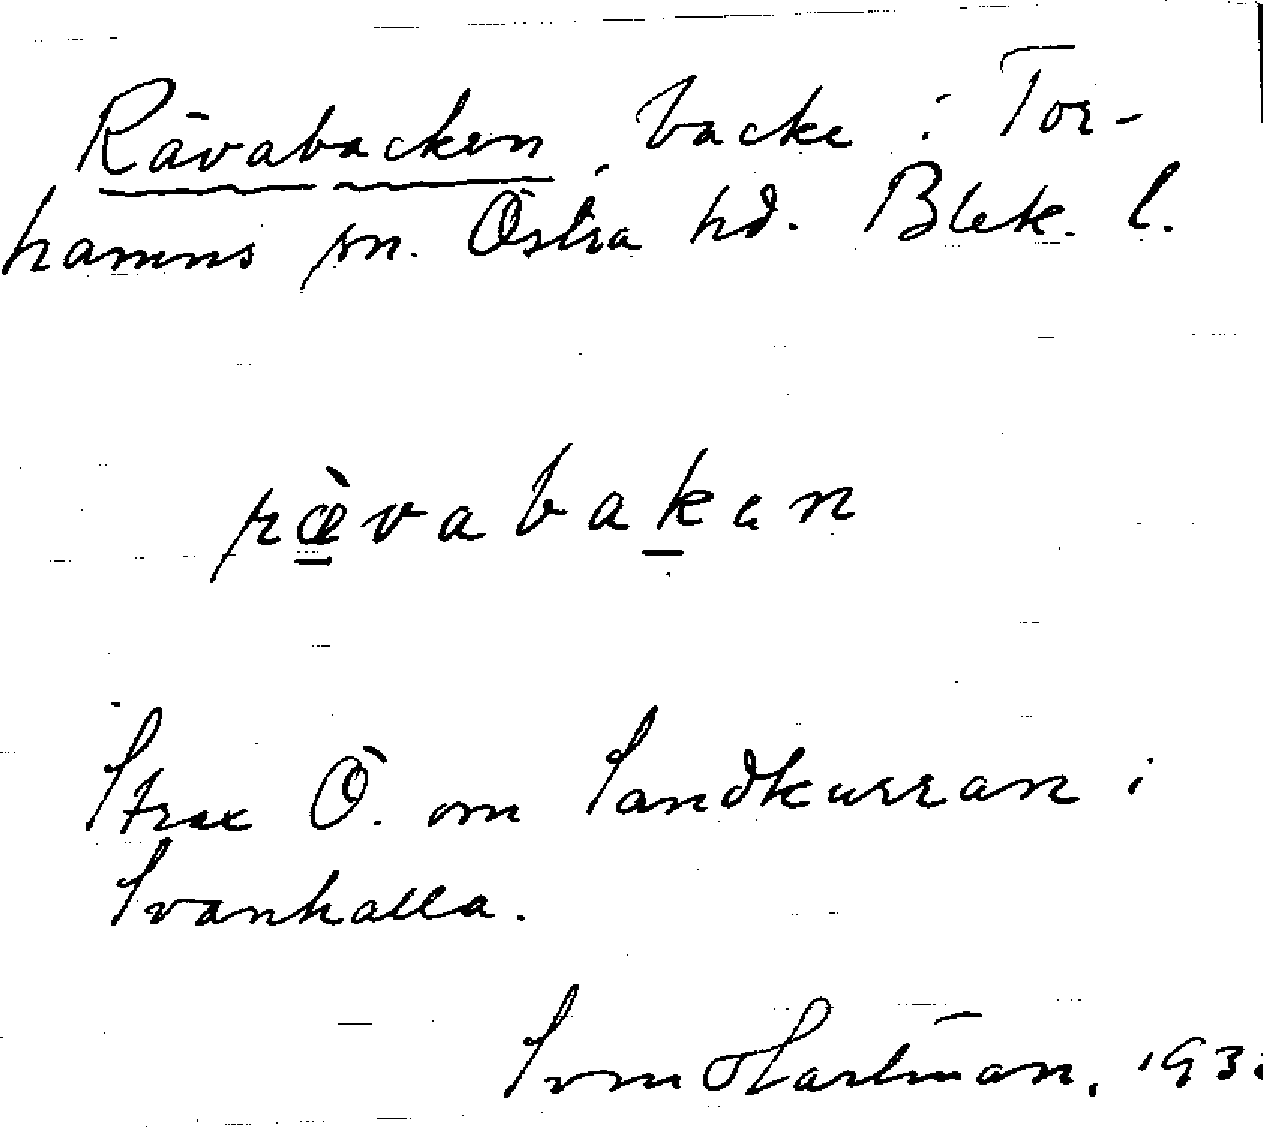 Rävabacken, backe i Tor-
hamns sn. Östra hd. Blek. l.
ræ̀vabakan
Strax Ö. om Sandkurran i
Svanhalla.
Sven Hartman. 193